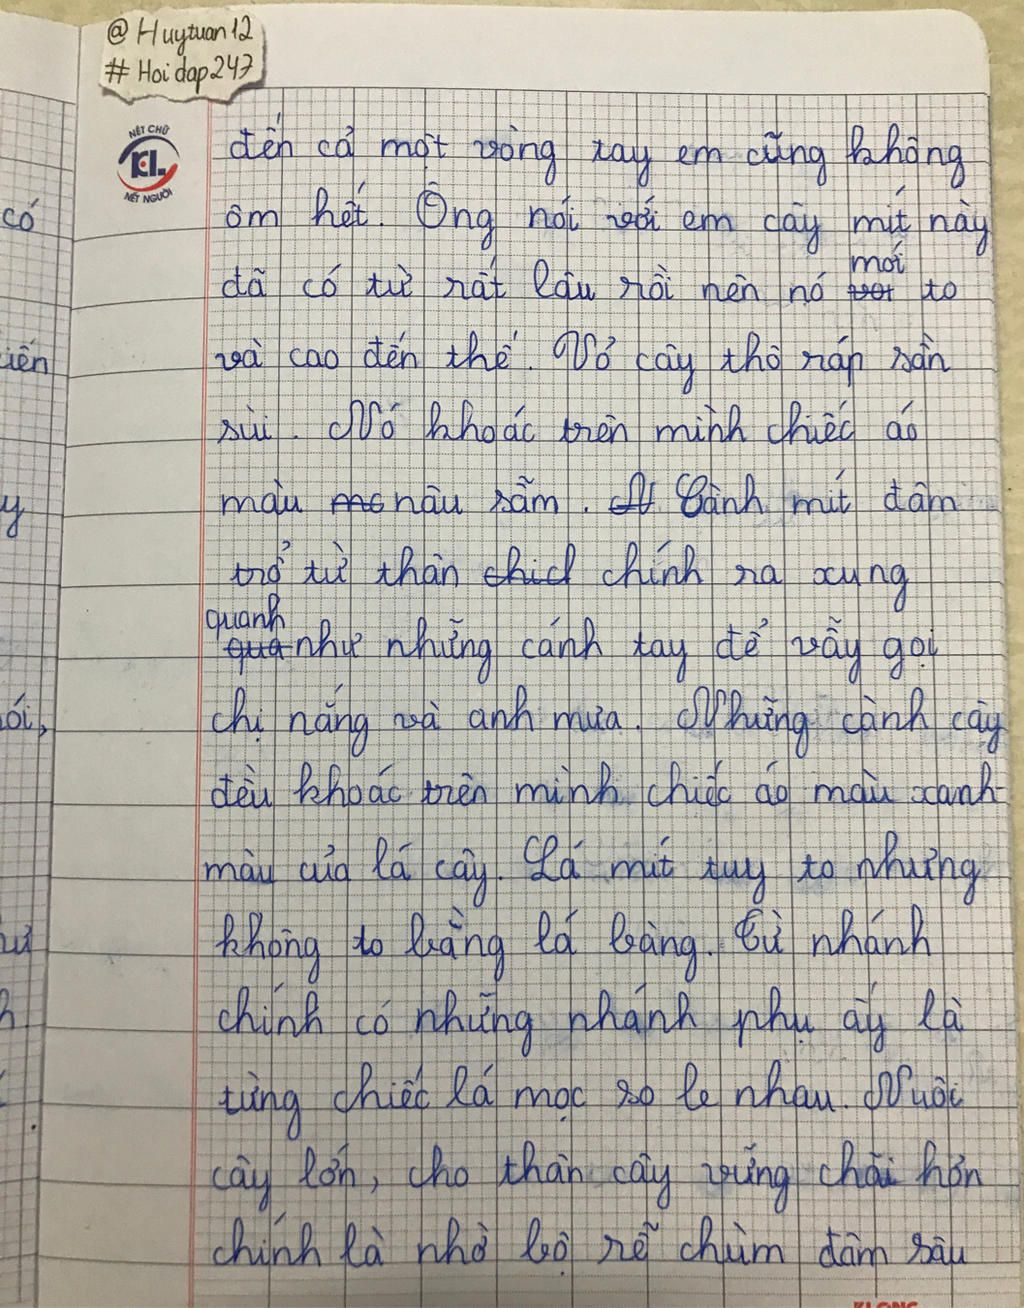 @ Huytuan12
# Hoidap247
NÉT CHỮ
KL
NẾT NGƯỜI
đến cả một vòng tay em cũng không
ôm hết. Ông nói với em cây mít này
mới
đã có từ rất lâu rồi nên nó to
và cao đến thế. Vỏ cây thô ráp sần
sùi. Nó khoác trên mình chiếc áo
màu nâu sẫm. Cành mít đâm
trổ từ thân chính ra xung
quanh
như những cánh tay để vẫy gọi
chị nắng và anh mưa. Những cành cây
đều khoác trên mình chiếc áo màu xanh
màu của lá cây. Lá mít tuy to nhưng
không to bằng lá bàng. Từ nhánh
chính có những nhánh phụ ấy là
từng chiếc lá mọc so le nhau. Nuôi
cây lớn, cho thân cây vững chãi hơn
chính là nhờ bộ rễ chùm đâm sâu
có
iến
y
ói,
h
KLONG